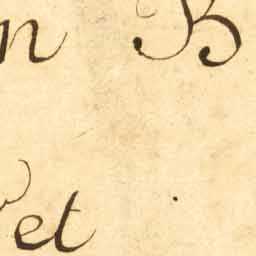 n B
et